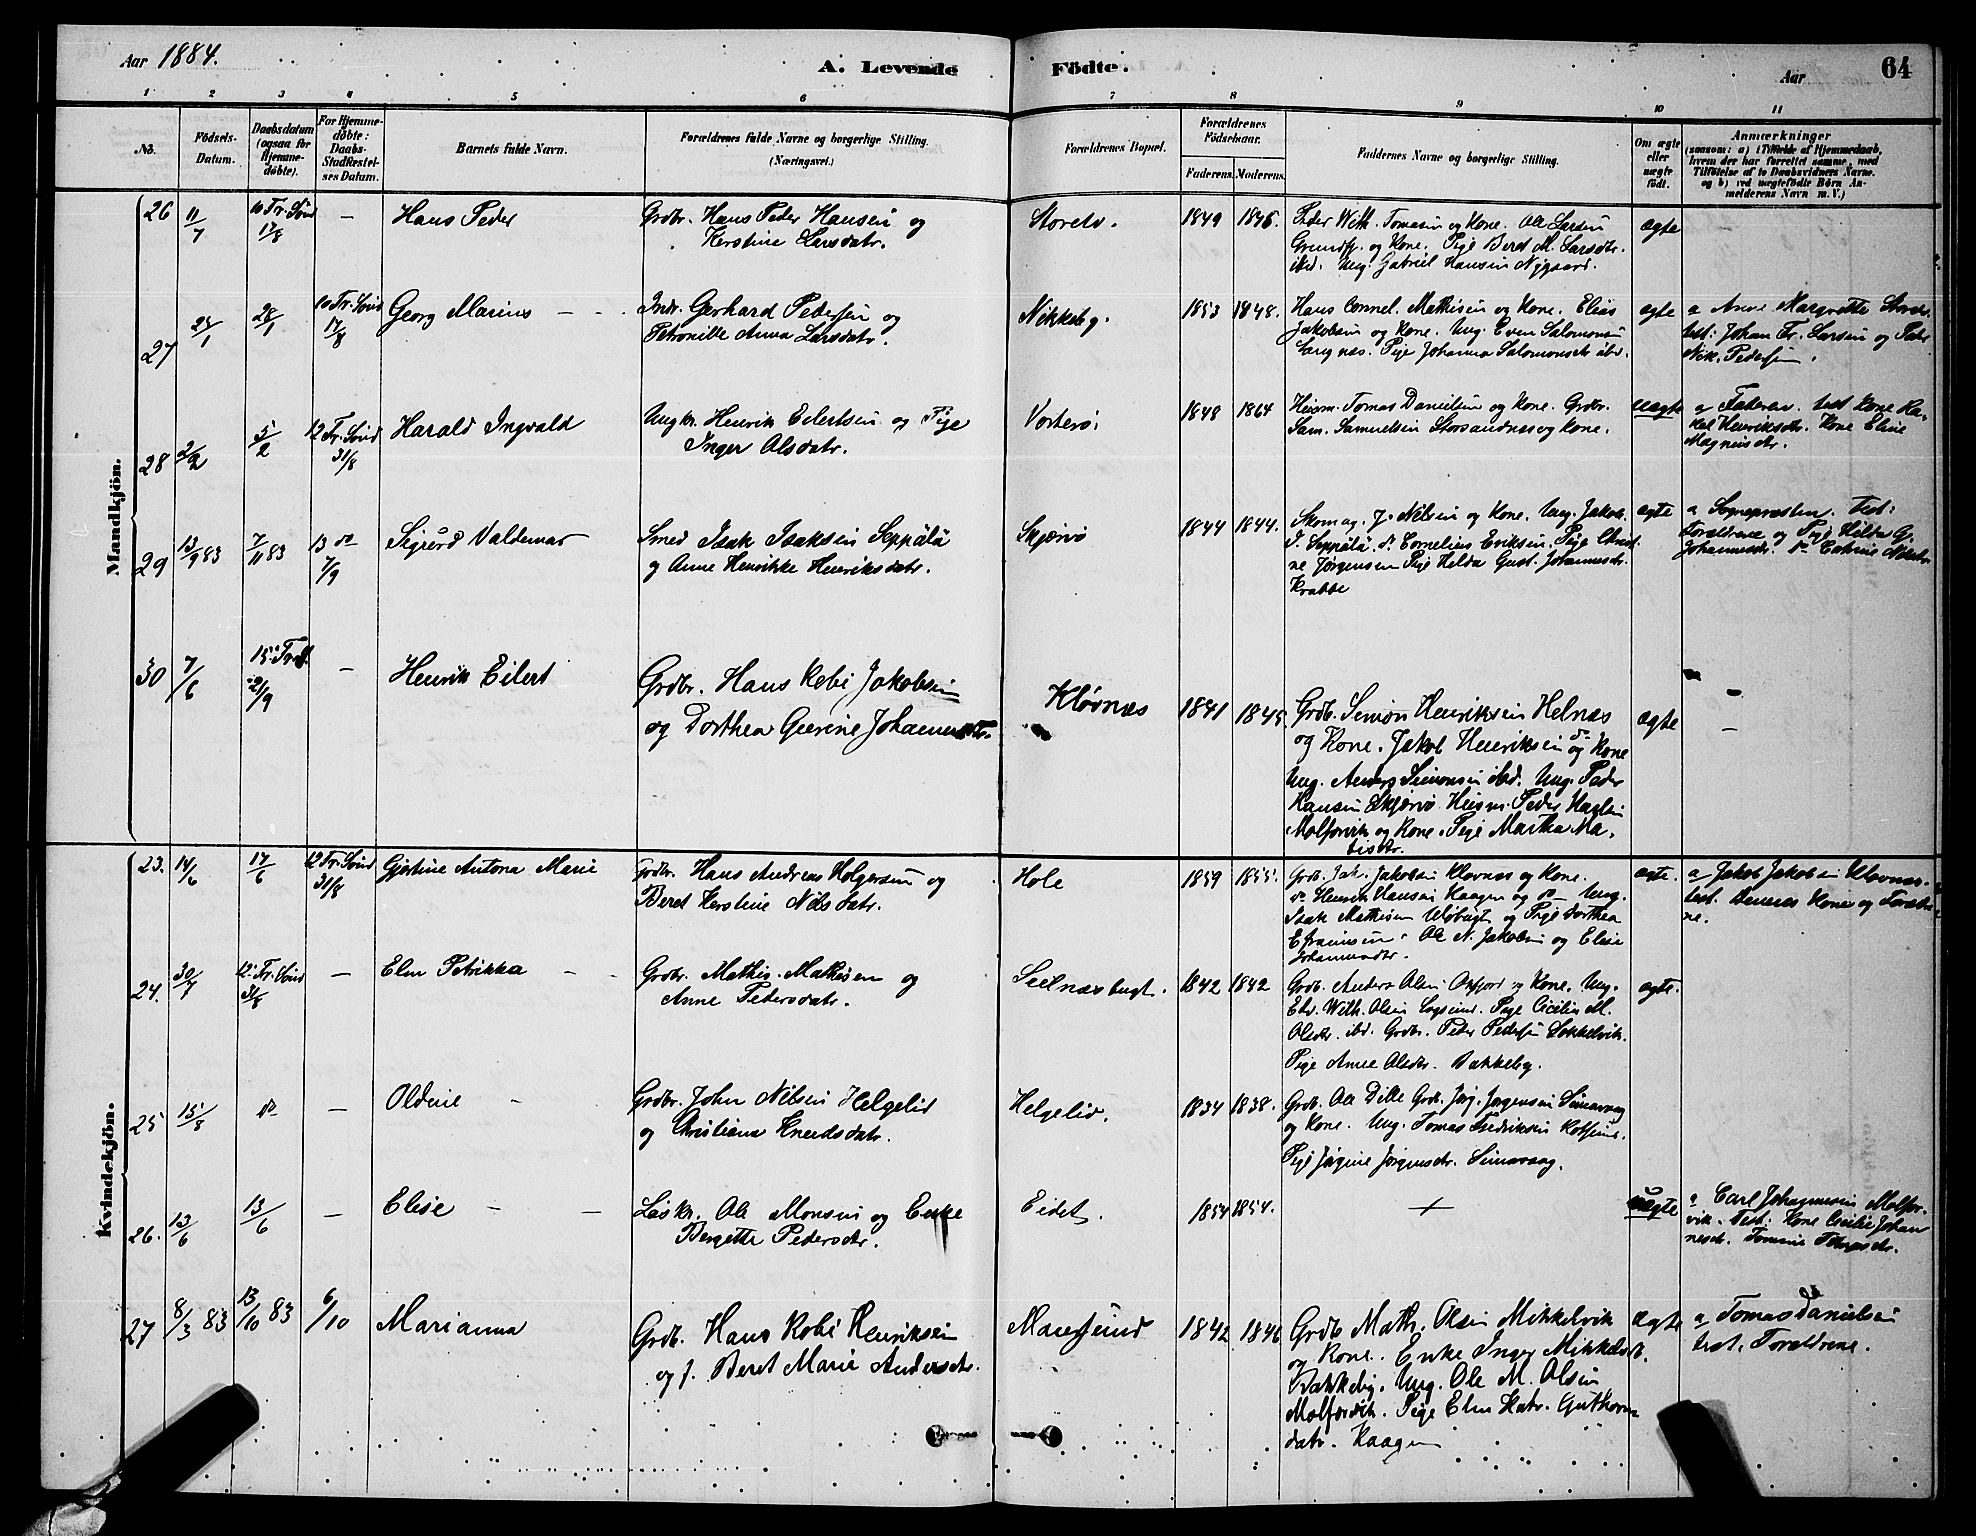 Aar 1884.
A. Levende Födte.
Aar 64
1 2 3 4 5 6 7 8 9 10 11
No.
Födsels-
Datum.
Daabsdatum
(ogsaa for
Hjemme-
døbte).
For Hjemme-
døbte:
Daabs-
Stadfæstel-
ses Datum.
Barnets fulde Navn.
Forældrenes fulde Navne og borgerlige Stilling.
(Næringsvei.)
Forældrenes Bopæl.
Forældrenes
Födselsaar.
Faderens. Moderens.
Faddernes Navne og borgerlige Stilling.
Om ægte
eller
uægte
født.
Anmærkninger
(saasom: a) i Tilfælde af Hjemmedaab,
hvem der har forrettet samme, med
Tilføielse af to Daabsvidners Navne.
og b) ved uægtefødte Börn An-
melderens Navn m. V.)
Mandkjön.
26 11/7 10 Tr. Sönd 17/8 — Hans Peder
Grdbr. Hans Peder Hansen og
Kerstine Larsdatr.
Storelv. 1849 1846.
Peder Wilh. Tomasen og Kone. Ole Larsen
Grundfj. og Kone. Pige Beret M. Larsdtr.
ibid. Ung. Gabriel Hansen Nygaard.
ægte
27 24/1 28/1 10 Tr. Sönd 17/8 Georg Marius
Indr. Gerhard Pedersen og
Petronille Anna Larsdatr.
Nikkeby. 1853 1848.
Hans Cornel. Mathisen og Kone. Elias
Jakobsen og Kone. Ung. Even Salomonsen
Langnes. Pige Johanna Salomonsdtr ibd.
ægte
a Anne Margrethe
test: Johan Fr. Larsen og Petr
Nik. Pedersen.
28 2/2 5/2 12 Tr. Sönd 31/8 Harald Ingvald
Ungkr. Henrik Eilertsen og Pige
Inger Olsdatr.
Vorterø. 1848 1864
Husm. Tomas Danielsen og Kone. Grdbr.
Sam. Samuelsen Storsandnes og Kone.
uægte
a Faderen. test Kone Ra-
kel Henriksdtr. Kone Eline
Magnusdtr.
29 13/9 83 7/11 83 13 do 7/9 Sigurd Valdemar
Smed Isak Isaksen Seppälä
og Anne Henrikke Henriksdatr.
Skjærvø 1844 1844.
Skomag. J. Nilsen og Kone. Ung. Jakob
I. Seppälä. do Cornelius Eriksen. Pige Christi-
ne Jørgensen Pige Hilda Gust. Johannesdtr.
Krabbe
ægte
a Sognepræsten. Test:
Forældrene og Pige Hilda G.
Johannesdtr. do Catrine
30 7/6 15 Tr. S. 21/9 — Henrik Eilert
Grdbr. Hans Kobi Jakobsen
og Dorthea Gurine Johannesdtr.
Kløvnæs 1841 1845.
Grdb. Simon Henriksen Helnæs
og Kone. Jakob Henriksen do og Kone
Ung. Anders Simonsen ibd. Ung. Peder
Hansen Skjærvø. Husm. Peder
Molforvik og Kone. Pige Martha Ma-
tisdtr.
ægte —
Kvindekjön.
23. 14/6 17/6 12 Tr. Sönd 31/8 Gjertine Antona Marie
Grdbr. Hans Andreas Holgersen og
Beret Kerstine Nilsdatr.
Hole 1859 1855.
Grdb. Jak. Jakobsen Kløvnæs og Kone.
do Henrik Hansen Kaagen og do Ung.
Isak Mathisen Uløbugt og Pige Dorthea
Efraimsen. Ole N. Jakobsen og Elise
Johannesdtr.
ægte.
a Jakob Jakobsen Kløvnæs.
test. Dennes Kone og Foreldre-
ne.
24. 30/7 12 Tr. Sönd 31/8 — Elen Petrikka
Grdbr. Mathis Mathisen og
Anne Pedersdatr.
Seilnæsbugt. 1842 1842
Grdb. Anders Olsen Oxfjord og Kone. Ung.
Edv. Wilh. Olsen Logsund. Pige Cicilie M.
Olsdtr. ibd. Grdbr. Peder Pedersen
Pige Anne Olsdtr. Bakkeby.
ægte.
25 15/8 do — Oldine
Grdbr. John Nilsen Helgelid
og Christiana Knudsdatr.
Helgelid. 1834 1838.
Grdb. Ole Dille Grdb. Jörg. Jørgensen Simavaag
og Kone. Ung. Tomas Fredriksen Rotsund.
Pige Jørgine Jørgensdtr. Simavaag.
26. 13/6 13/6 — Elise
Løskr. Ole Monsen og Enke
Bergette Pedersdtr.
Eidet. 1854 1854. +
uægte
a Carl Johannesen Molfor-
vik. Test: Kone Cicilie Johan-
nesdr. Tomine
27 8/3 83 13/10 83 6/10 Marianna
Grdb. Hans Kobi Henriksen
og h. Beret Marie Andersdtr.
Maursund 1842 1846
Grdb Math. Olsen Mikkelvik
og Kone. Enke Inger Mikkelsdt.
Bakkeby. Ung. Ole M. Olsen
Molforvik. Pige Elen Katr. Guthorms
datr. Kaagen
ægte
a Tomas Danielsen
test. Forældrene.